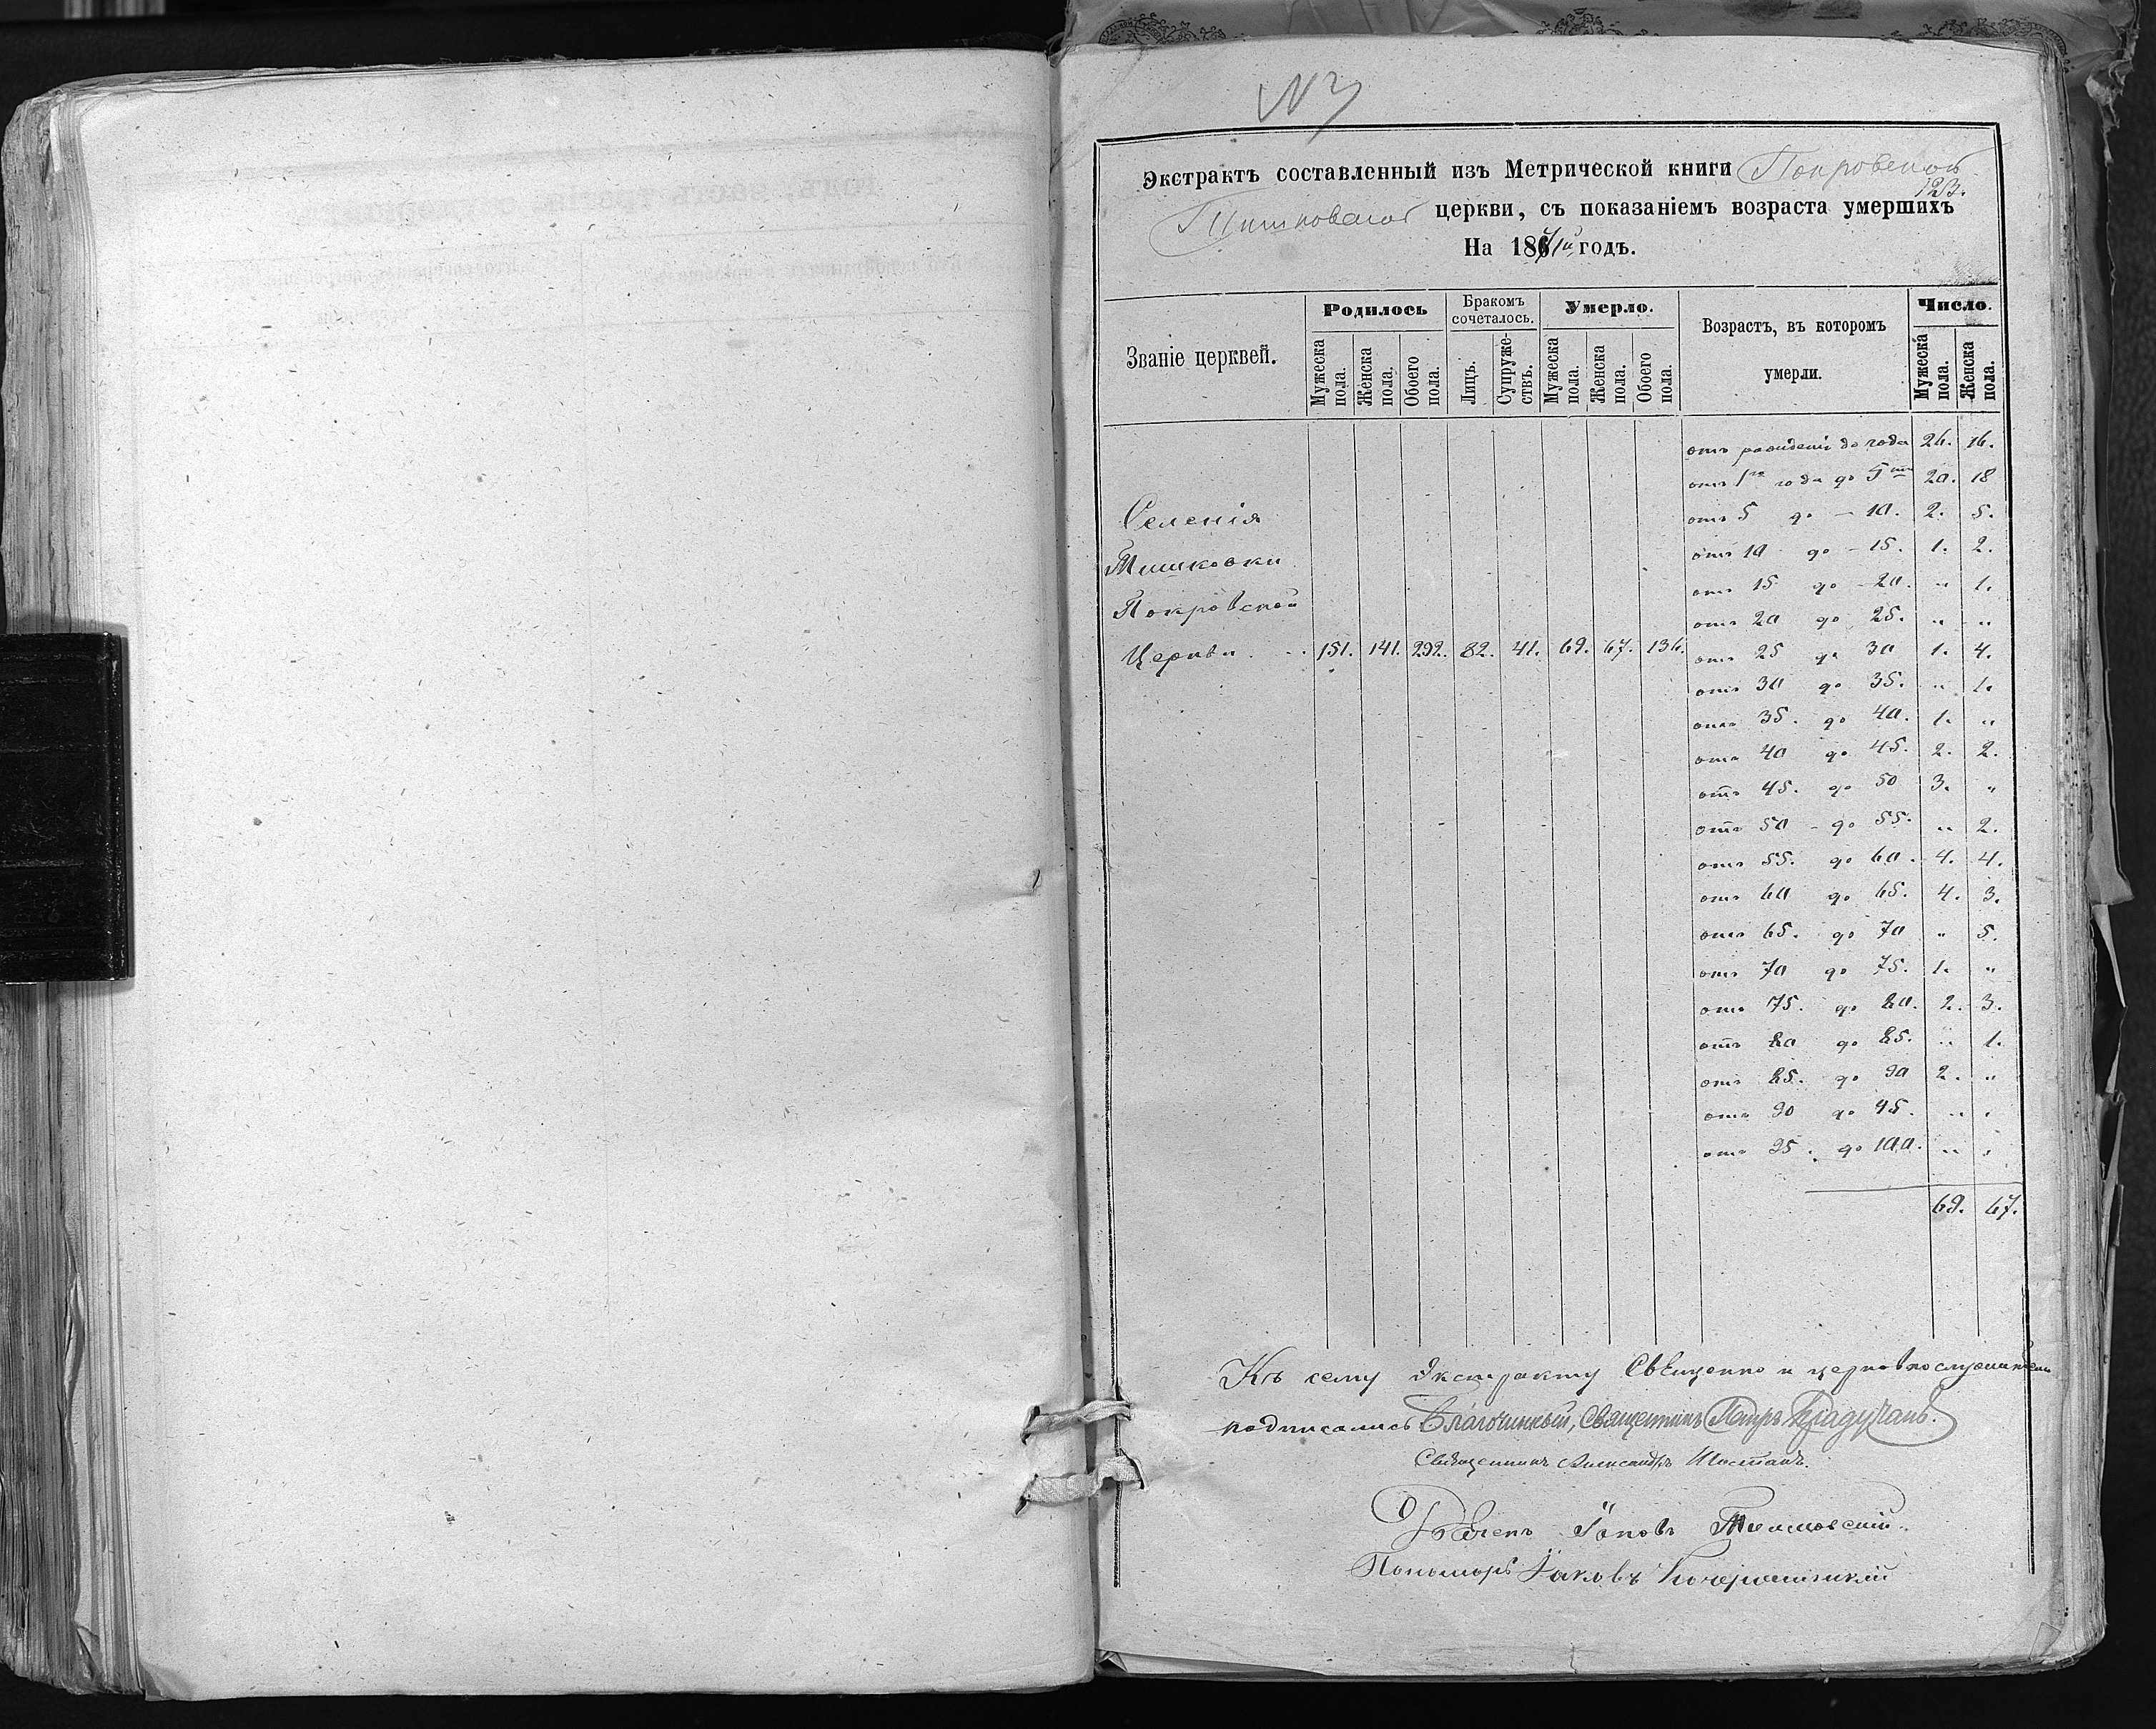 N 7
Экстрактъ составленный изъ Метрической книги Покровской
123.
Тишковской церкви, съ показаніемъ возраста умершихъ
На 1871й годъ.
Званіе церквей.
Родилось
Мужеска пола.
Женска пола.
Обоего пола.
Бракомъ сочеталось.
Лицъ.
Супружествъ.
Умерло.
Мужеска пола.
Женска пола.
Обоего пола.
Возрастъ, въ которомъ умерли.
Число.
Мужеска пола.
Женска пола.
Селенія
Тишковки
Покровской
Церкви. 151. 141. 292. 82. 41. 69. 67. 136.
отъ рожденія до года 26. 16.
отъ 1го года до 5ти 20. 18
отъ 5 до - 10. 2. 5.
отъ 10 до - 15. 1. 2.
отъ 15 до - 20. „ 1.
отъ 20 до 25. „ „
отъ 25 до 30 1. 4.
отъ 30 до 35. „ 1.
отъ 35. до 40. 1. „
отъ 40 до 45. 2. 2.
отъ 45. до 50 3. „
отъ 50 - до 55. „ 2.
отъ 55. до 60. 4. 4.
отъ 60 до 65. 4. 3.
отъ 65. до 70 „ 5.
отъ 70 до 75. 1. „
отъ 75. до 80. 2. 3.
отъ 80 до 85. „ 1.
отъ 85. до 90 2. „
отъ 90 до 95. „ „
отъ 95. до 100. „ „
69. 67.
Къ сему Экстракту Священно и церковнослужители
подписались Благочинный, Священникъ Петръ
Священникъ Александръ Шостакъ.
Іаковъ
Пономарь Іаковъ